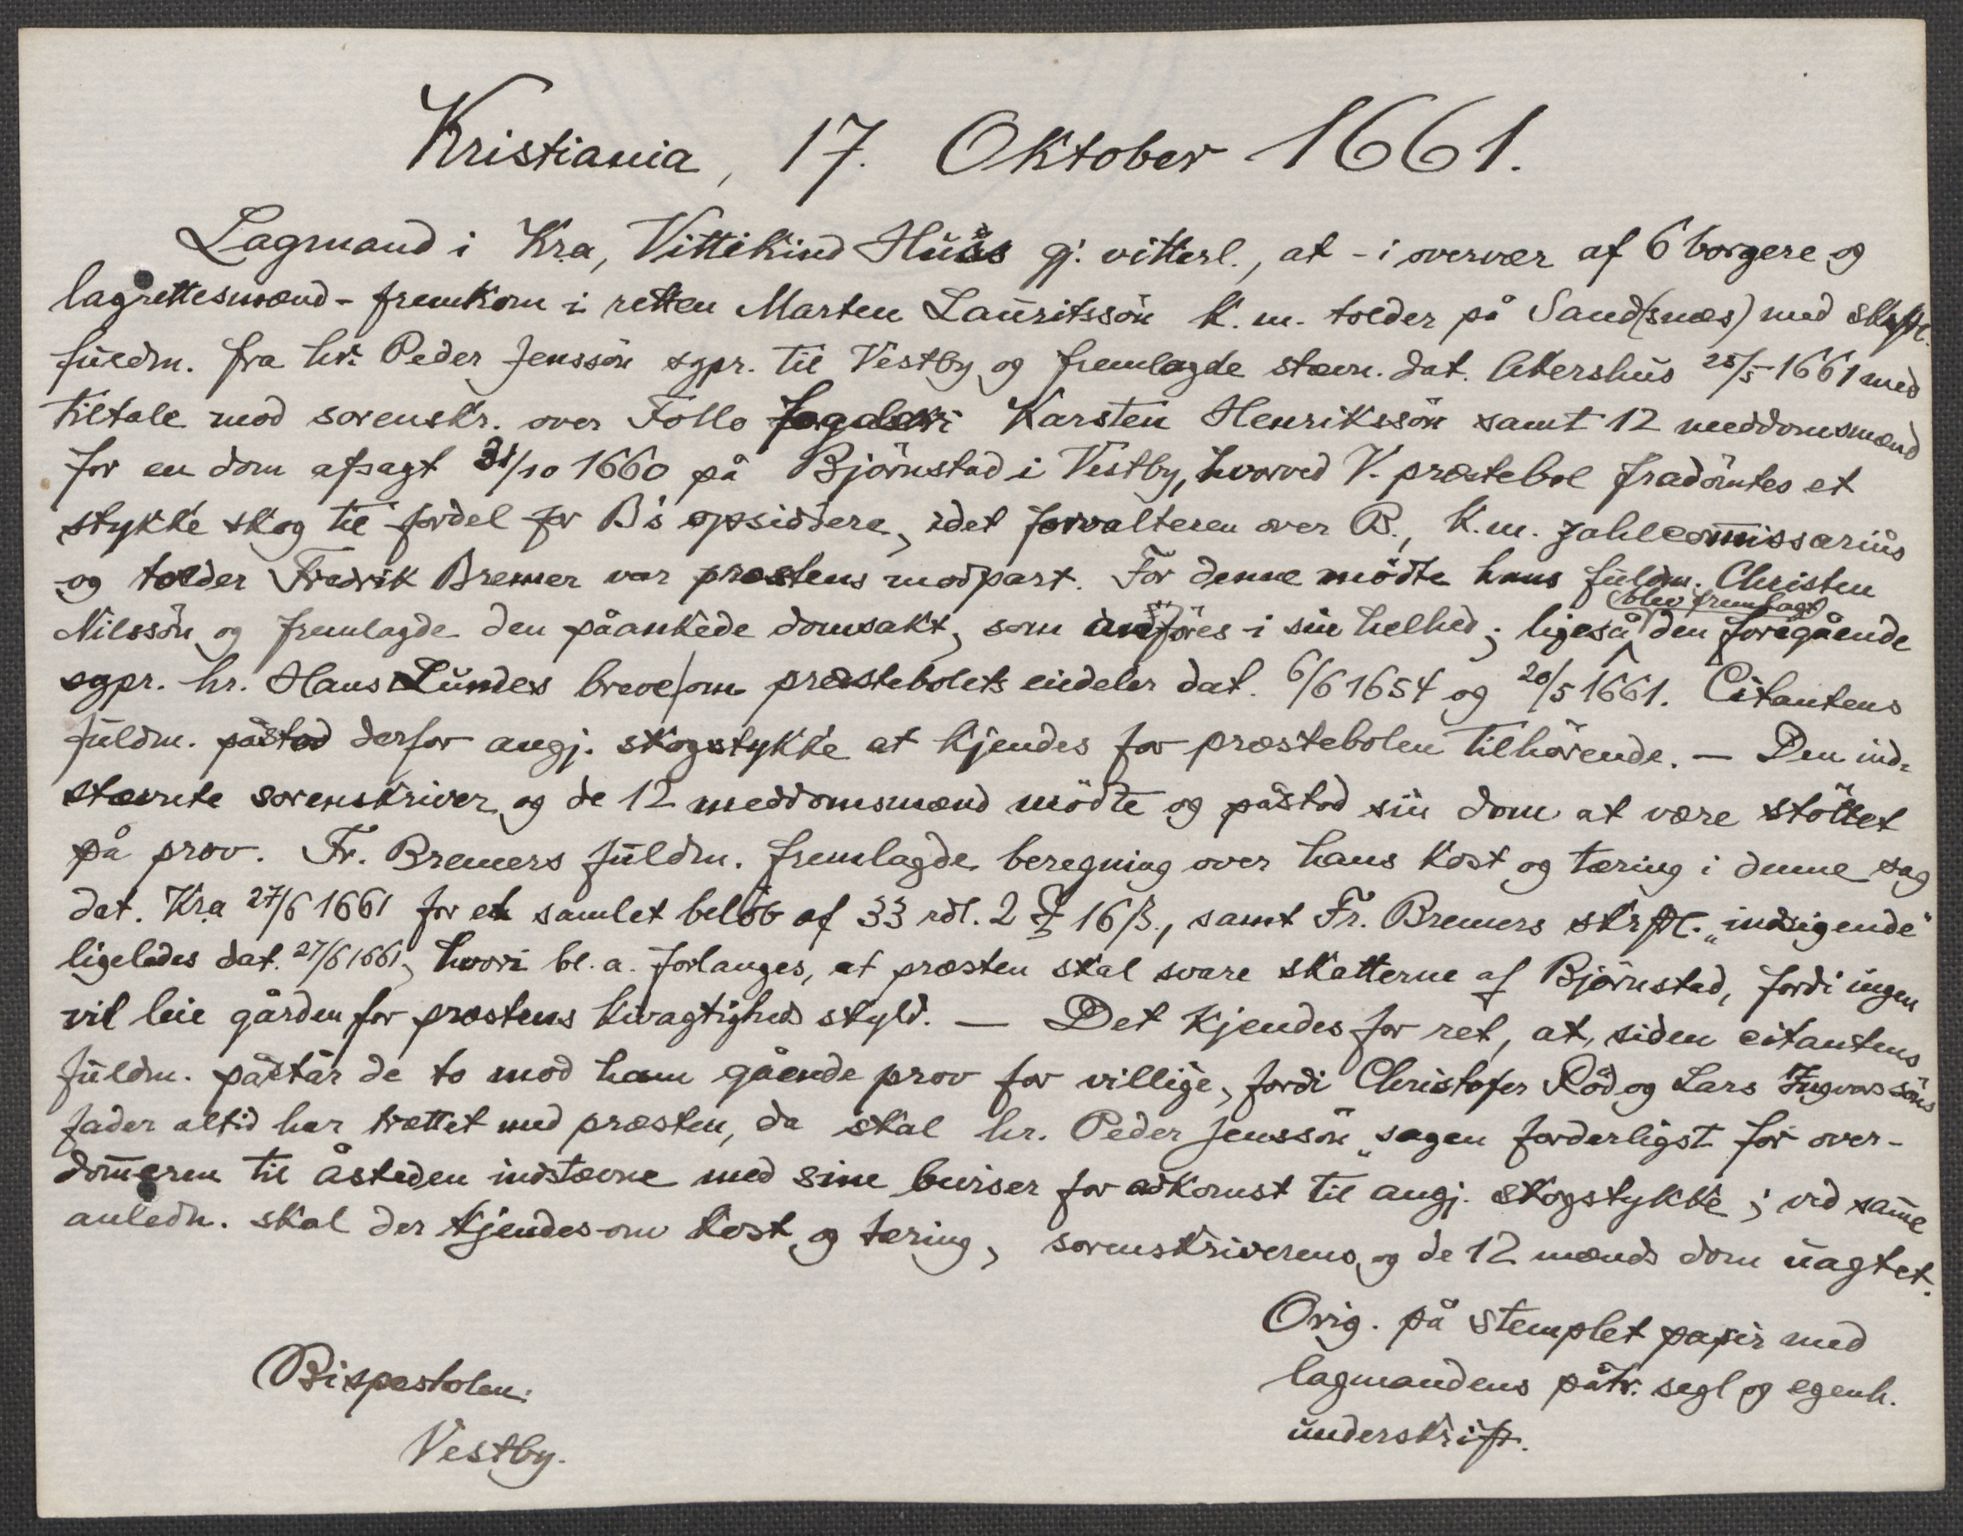 Kristiania, 17. Oktober 1661.
Lagmand i Kra, Vittikind Huss gj. vitterl., at - i overvær af 6 borgere og
lagrettesmænd - fremkom i retten Marten Lauritssön k. m. tolder på Sand(snæs) med skrftl.
fuldm. fra hr. Peder Jenssön sgpr. til Vestby og fremlagde stævn. dat. Akershus 25/5 1661 med
tiltale mod sorenskr. over Follo fogderi Karsten Henrikssön samt 12 meddomsmænd
for en dom afsagt 31/10 1660 på Björnstad i Vestby, hvorved V. præstebol fradömtes et
stykke skog til fordel for B's opsiddere, idet forvalteren over B., k. m. zahlcom̅issarius
og tolder Fredrik Bremer var præstens modpart. For denne mödte hans fuldm. Christen
Nilssön og fremlagde den påankede domsakt, som anföres i sin helhed; ligeså (blev fremlagt) den foregående
sgpr. hr. Hans Lundes breve om præstebolets eiedeler dat. 6/6 1654 og 20/5 1661. Citantens
fuldm. påstod derfor angj. skogstykke at kjendes for præstebolen tilhörende. — Den ind-
stævnte sorenskriver og de 12 meddomsmænd mödte og påstod sin dom at være stöttet
på prov. Fr. Bremers fuldm. fremlagde beregning over hans kost og tæring i denne sag
dat. Kra 27/6 1661 for et samlet belöb af 33 rdl. 2 16 β., samt Fr. Bremers skrftl. „indsigende“
ligeledes dat. 27/6 1661, hvori bl. a. forlanges, at præsten skal svare skatterne af Björnstad, fordi ingen
vil leie gården for præstens kivagtigheds skyld. — Det kjendes for ret, at, siden citantens
fuldm. påstår de to mod ham gående prov for villige, fordi Christofer Röd og Lars Ingvarssöns
fader altid har trættet med præsten, da skal hr. Peder Jenssön „sagen forderligst for over-
dom̅eren til åsteden indstævne med sine beviser for adkomst til angj. skogstykke; ved sam̅e
anledn. skal der kjendes om kost og tæring, sorenskriverens og de 12 mænds dom uagtet.
Orig. på stemplet papir med
lagmandens påtr. segl og egenh.
underskrift.
Bispestolen:
Vestby.